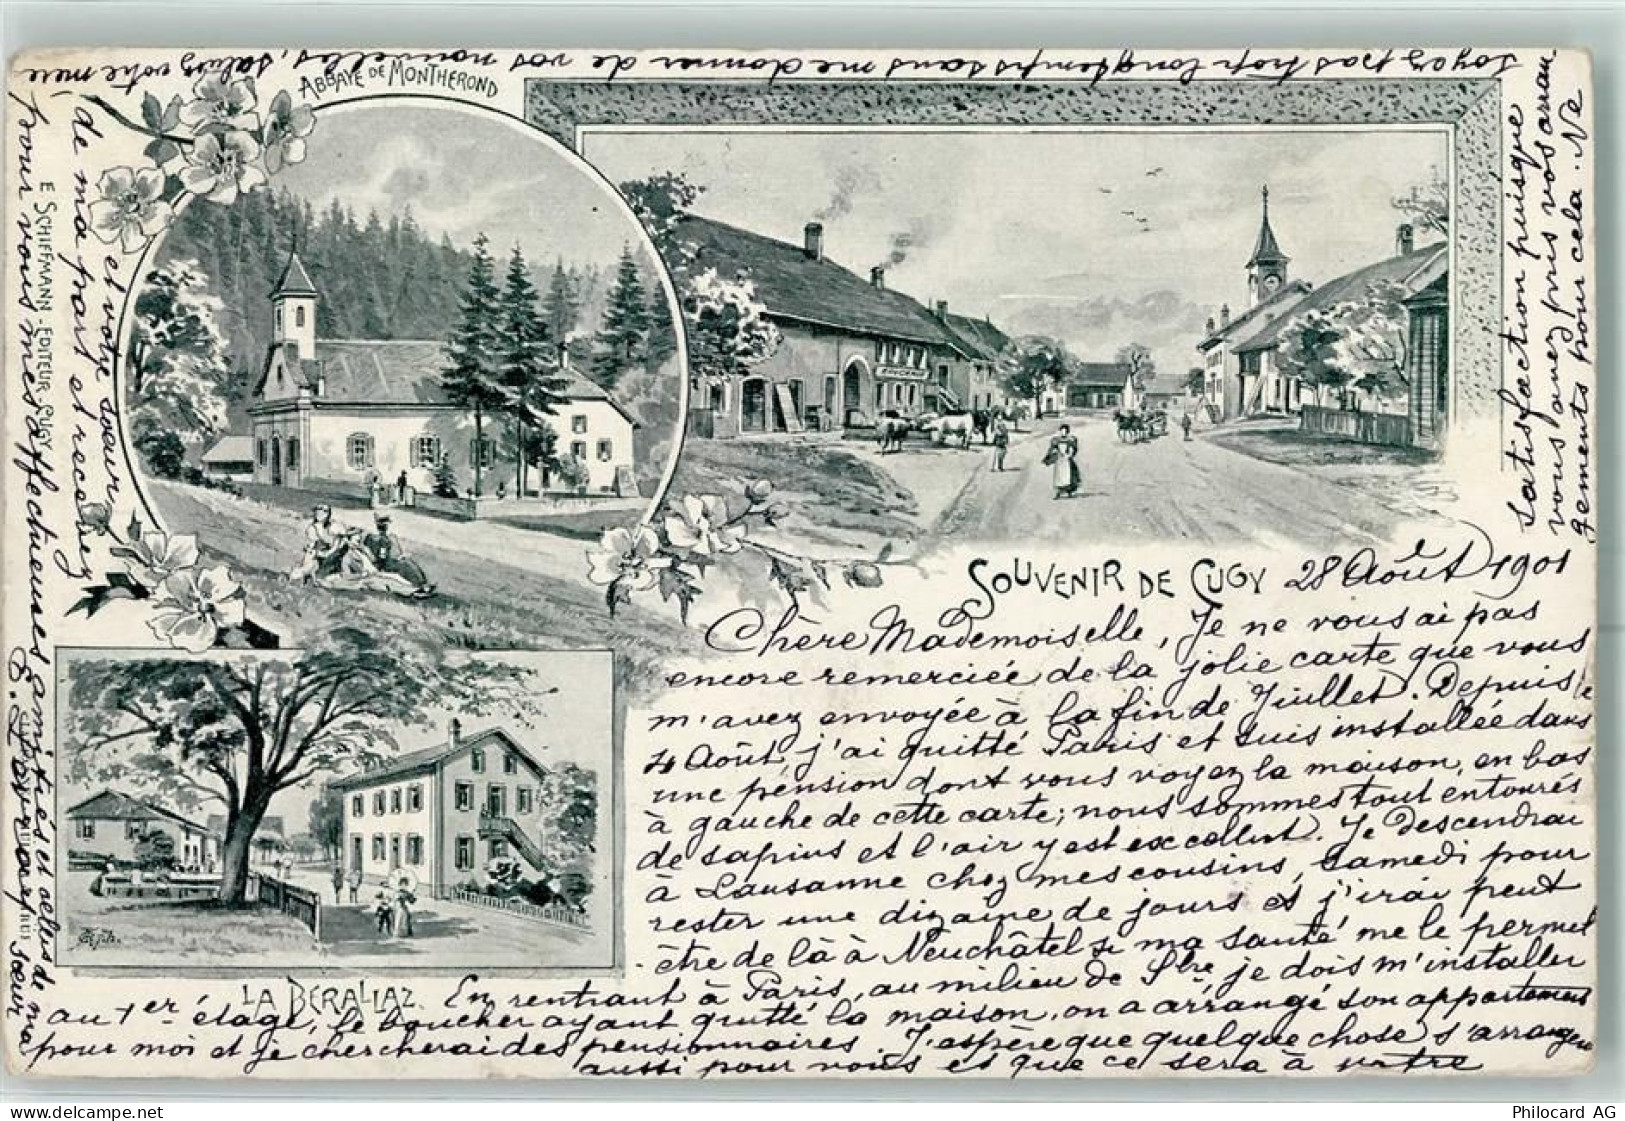 ABBAYE DE MONTHEROND
SOUVENIR DE CUGY
28 Août 1901
Chère Mademoiselle, Je ne vous ai pas
encore remerciée de la jolie carte que vous
m'avez envoyée à la fin de Juillet. Depuis le
4 Août, j'ai quitté Paris et suis installée dans
une pension dont vous voyez la maison, en bas
à gauche de cette carte; nous sommes tout entourés
de sapins et l'air y est excellent. Je descendrai
à Lausanne chez mes cousins, Samedi pour
rester une dizaine de jours et j'irai peut
être de là à Neuchâtel si ma santé me le permet
LA BÉRALLAZ.
En rentrant à Paris, au milieu de Sbre je dois m'installer
au 1er étage, le boucher ayant quitté la maison, on a arrangé son appartement
pour moi et je chercherai des pensionnaires. J'espère que quelque chose s'arrangera
aussi pour vous et que ce sera à votre
satisfaction puisque
vous avez pris vos arran
gements pour cela. Ne
soyez pas trop longtemps sans me donner de vos nouvelles, saluez votre mère
et votre soeur
de ma part et recevez
pour vous mes affectueuses amitiés et celles de ma
soeur
E. SCHIFFMANN, EDITEUR, CUGY
Philocard AG
www.delcampe.net